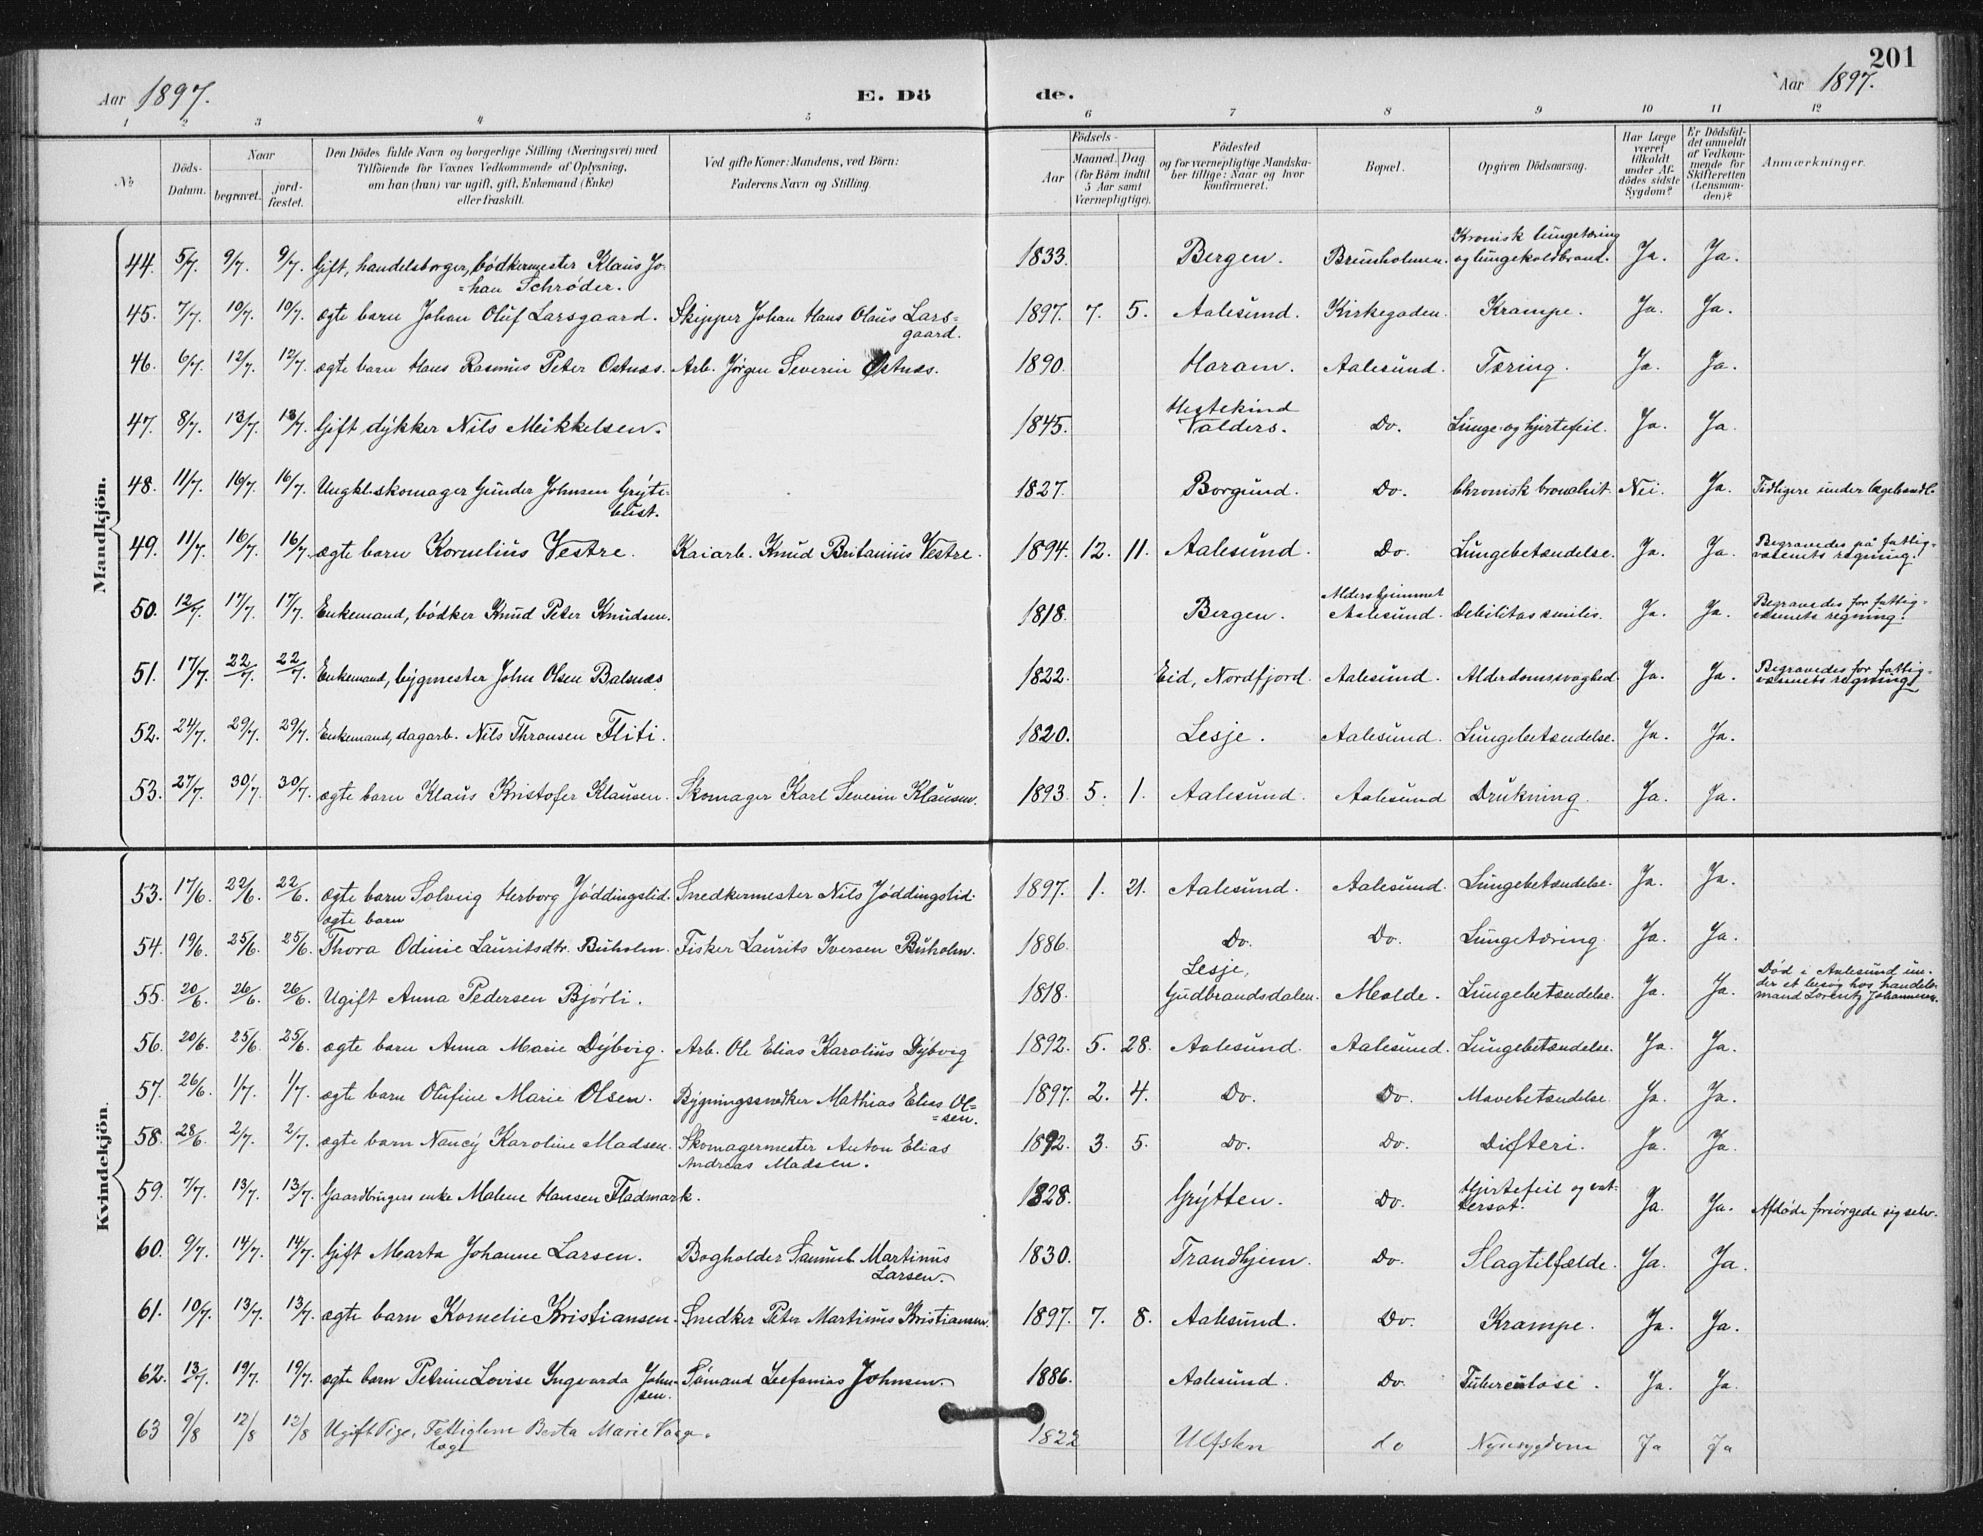 201
Aar 1897. E. Dö de. Aar 1897.
1 2 3 4 5 6 7 8 9 10 11 12
№ Döds-Datum. Naar begravet. jord-fæstet. Den Dödes fulde Navn og borgerlige Stilling (Næringsvei) med Tilföiende for Voxnes Vedkommende af Oplysning, om han (hun) var ugift, gift, Enkemand (Enke) eller fraskilt. Ved gifte Koner: Mandens, ved Börn: Faderens Navn og Stilling. Födsels- Aar Maaned. Dag (for Börn indtil 5 Aar samt Værnepligtige). Födested og for værnepligtige Mandskaber tillige: Naar og hvor konfirmeret. Bopæl. Opgiven Dödsaarsag. Har Læge været tilkaldt under Afdödes sidste Sygdom? Er Dödsfaldet anmeldt af Vedkommende for Skifteretten (Lensmanden)? Anmærkninger.
Mandkjön.
44. 5/7. 9/7. 9/7. Gift, handelsborger, bödkermester Klaus Jo-=han Schröder. 1833. Bergen. Brunholmen. Kronisk lungetæring og lungekoldbrand. Ja. Ja.
45. 7/7. 10/7. 10/7. ægte barn Johan Oluf Larsgaard. Skipper Johan Hans Olaus Lars=gaard. 1897. 7. 5. Aalesund. Kirkegaden. Krampe. Ja. Ja.
46. 6/7. 12/7. 12/7. ægte barn Hans Rasmus Peter Ostnæs. Arb. Jørgen Severin Østnæs. 1890. Haram. Aalesund. Tæring. Ja. Ja.
47. 8/7. 13/7. 13/7. Gift dykker Nils Mikkelsen. 1845. Hestekind Valders. Do. Lunge- og hjertefeil. Ja. Ja.
48. 11/7. 16/7. 16/7. Ungkl. skomager Gunder Johnsen Gryte-bust. 1827. Borgund. Do. Chronisk bronchit. Nei. Ja. Tidligere under lægebandl.
49. 11/7. 16/7. 16/7. ægte barn Kornelius Vestre. Kaiarb. Knud Britanius Vestre. 1894. 12. 11. Aalesund. Do. Lungebetændelse. Ja. Ja. Begravedes på fattig-væsenets regning.
50. 12/7. 17/7. 17/7. Enkemand, bödker Knud Peter Knudsen. 1818. Bergen. Aldershjemmet Aalesund. Debilitas senilis. Ja. Ja. Begravedes for fattig-væsenets regning.
51. 17/7. 22/7. 22/7. Enkemand, bygmester John Olsen Balsnæs 1822. Eid, Nordfjord. Aalesund. Alderdomssvaghed. Ja. Ja. Begravedes for fattig-væsenets regning.
52. 24/7. 29/7. 29/7. Enkemand, dagarb. Nils Thronsen Fliti. 1820. Lesje. Aalesund. Lungebetændelse. Ja. Ja.
53. 27/7. 30/7. 30/7. ægte barn Klaus Kristofer Klausen. Skomager Karl Severin Klausen. 1893. 5. 1. Aalesund. Aalesund Drukning. Ja. Ja.
Kvindekjön.
53. 17/6. 22/6. 22/6. ægte barn Solveig Herborg Jöddingslid. Snedkermester Nils Jöddingslid. 1897. 1. 21. Aalesund. Aalesund. Lungebetændelse. Ja. Ja.
54. 19/6. 25/6. 25/6. ægte barn Thora Odinie Lauritsdtr. Buholm. Fisker Laurits Iversen Buholm. 1886. Do. Do. Lungetæring. Ja. Ja.
55. 20/6. 26/6. 26/6. Ugift Anna Pedersen Bjørli. 1818. Lesje, Gudbrandsdalen. Molde. Lungebetændelse. Ja. Ja. Død i Aalesund un-der et besøg hos handels-mand Lorentz Johannesen.
56. 20/6. 25/6. 25/6. ægte barn Anna Marie Dybvig. Arb. Ole Elias Karolius Dybvig 1892. 5. 28. Aalesund. Aalesund. Lungebetændelse. Ja. Ja.
57. 26/6. 1/7. 1/7. ægte barn Olufine Marie Olsen. Bygningssnedker Mathias Elias Ol==sen. 1897. 2. 4. Do. Do. Mavebetændelse. Ja. Ja.
58. 28/6. 2/7. 2/7. ægte barn Nancy Karoline Madsen. Skomagermester Anton Elias Andreas Madsen. 1892. 3. 5. Do. Do. Difteri. Ja. Ja.
59. 7/7. 13/7. 13/7. Gaardbrugers enke Malene Hansen Fladmark. 1828. Grytten. Do. Hjertefeil og vat-tersot. Ja. Ja. Afdøde forsørgede sig selv.
60. 9/7. 14/7. 14/7. Gift Marta Johanne Larsen. Bogholder Samuel Martinus Larsen. 1830. Trondhjem. Do. Slagtilfælde. Ja. Ja.
61. 10/7. 13/7. 13/7. ægte barn Kornelie Kristiansen. Snedker Peter Martinus Kristiansen. 1897. 7. 8. Aalesund. Do. Krampe. Ja. Ja.
62. 13/7. 19/7. 19/7. ægte barn Petrine Lovise Ingvarda John-sen. Sömand Stefanias Johnsen. 1886. Aalesund. Do. Tuberculose. Ja. Ja.
63 9/8 12/8 12/8 Ugift Pige, Fattiglem Berta Marie Vaag. 1822 Ulfsten do Nyresygdom Ja Ja